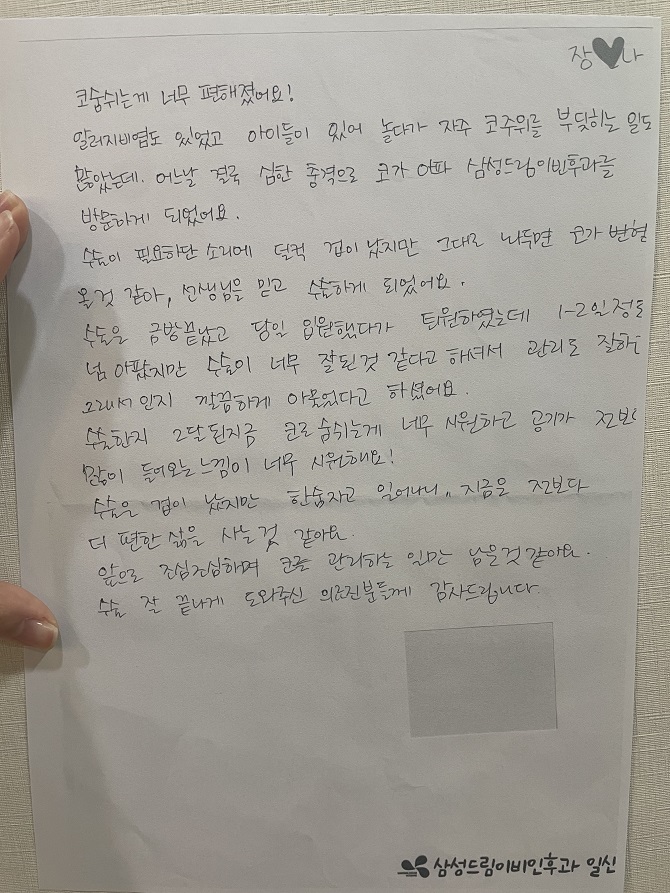 장♥나
코숨쉬는게 너무 편해졌어요!
알러지비염도 있었고 아이들이 있어 놀다가 자주 코주위를 부딪히는 일도
많았는데. 어느날 결국 심한 충격으로 코가 아파 삼성드림이빈후과를
방문하게 되었어요.
수술이 필요하단 소리에 덜컥 겁이 났지만 그대로 놔두면 코가 변형
올것 같아, 선생님을 믿고 수술하게 되었어요.
수술은 금방끝났고 당일 입원했다가 퇴원하였는데 1-2일정도
넘 아팠지만 수술이 너무 잘된것 같다고 하셔서 관리도 잘하
그래서인지 깔끔하게 아물었다고 하셨어요.
수술한지 2달된지금 코로 숨쉬는게 너무 시원하고 공기가 전보
많이 들어오는 느낌이 너무 시원해요!
수술은 겁이 났지만 한숨자고 일어나니.. 지금은 전보다
더 편한 삶을 사는것 같아요.
앞으로 조심조심하며 코를 관리하는 일만 남은것같아요.
수술 잘 끝나게 도와주신 의료진분들께 감사드립니다.
삼성드림이비인후과 일신